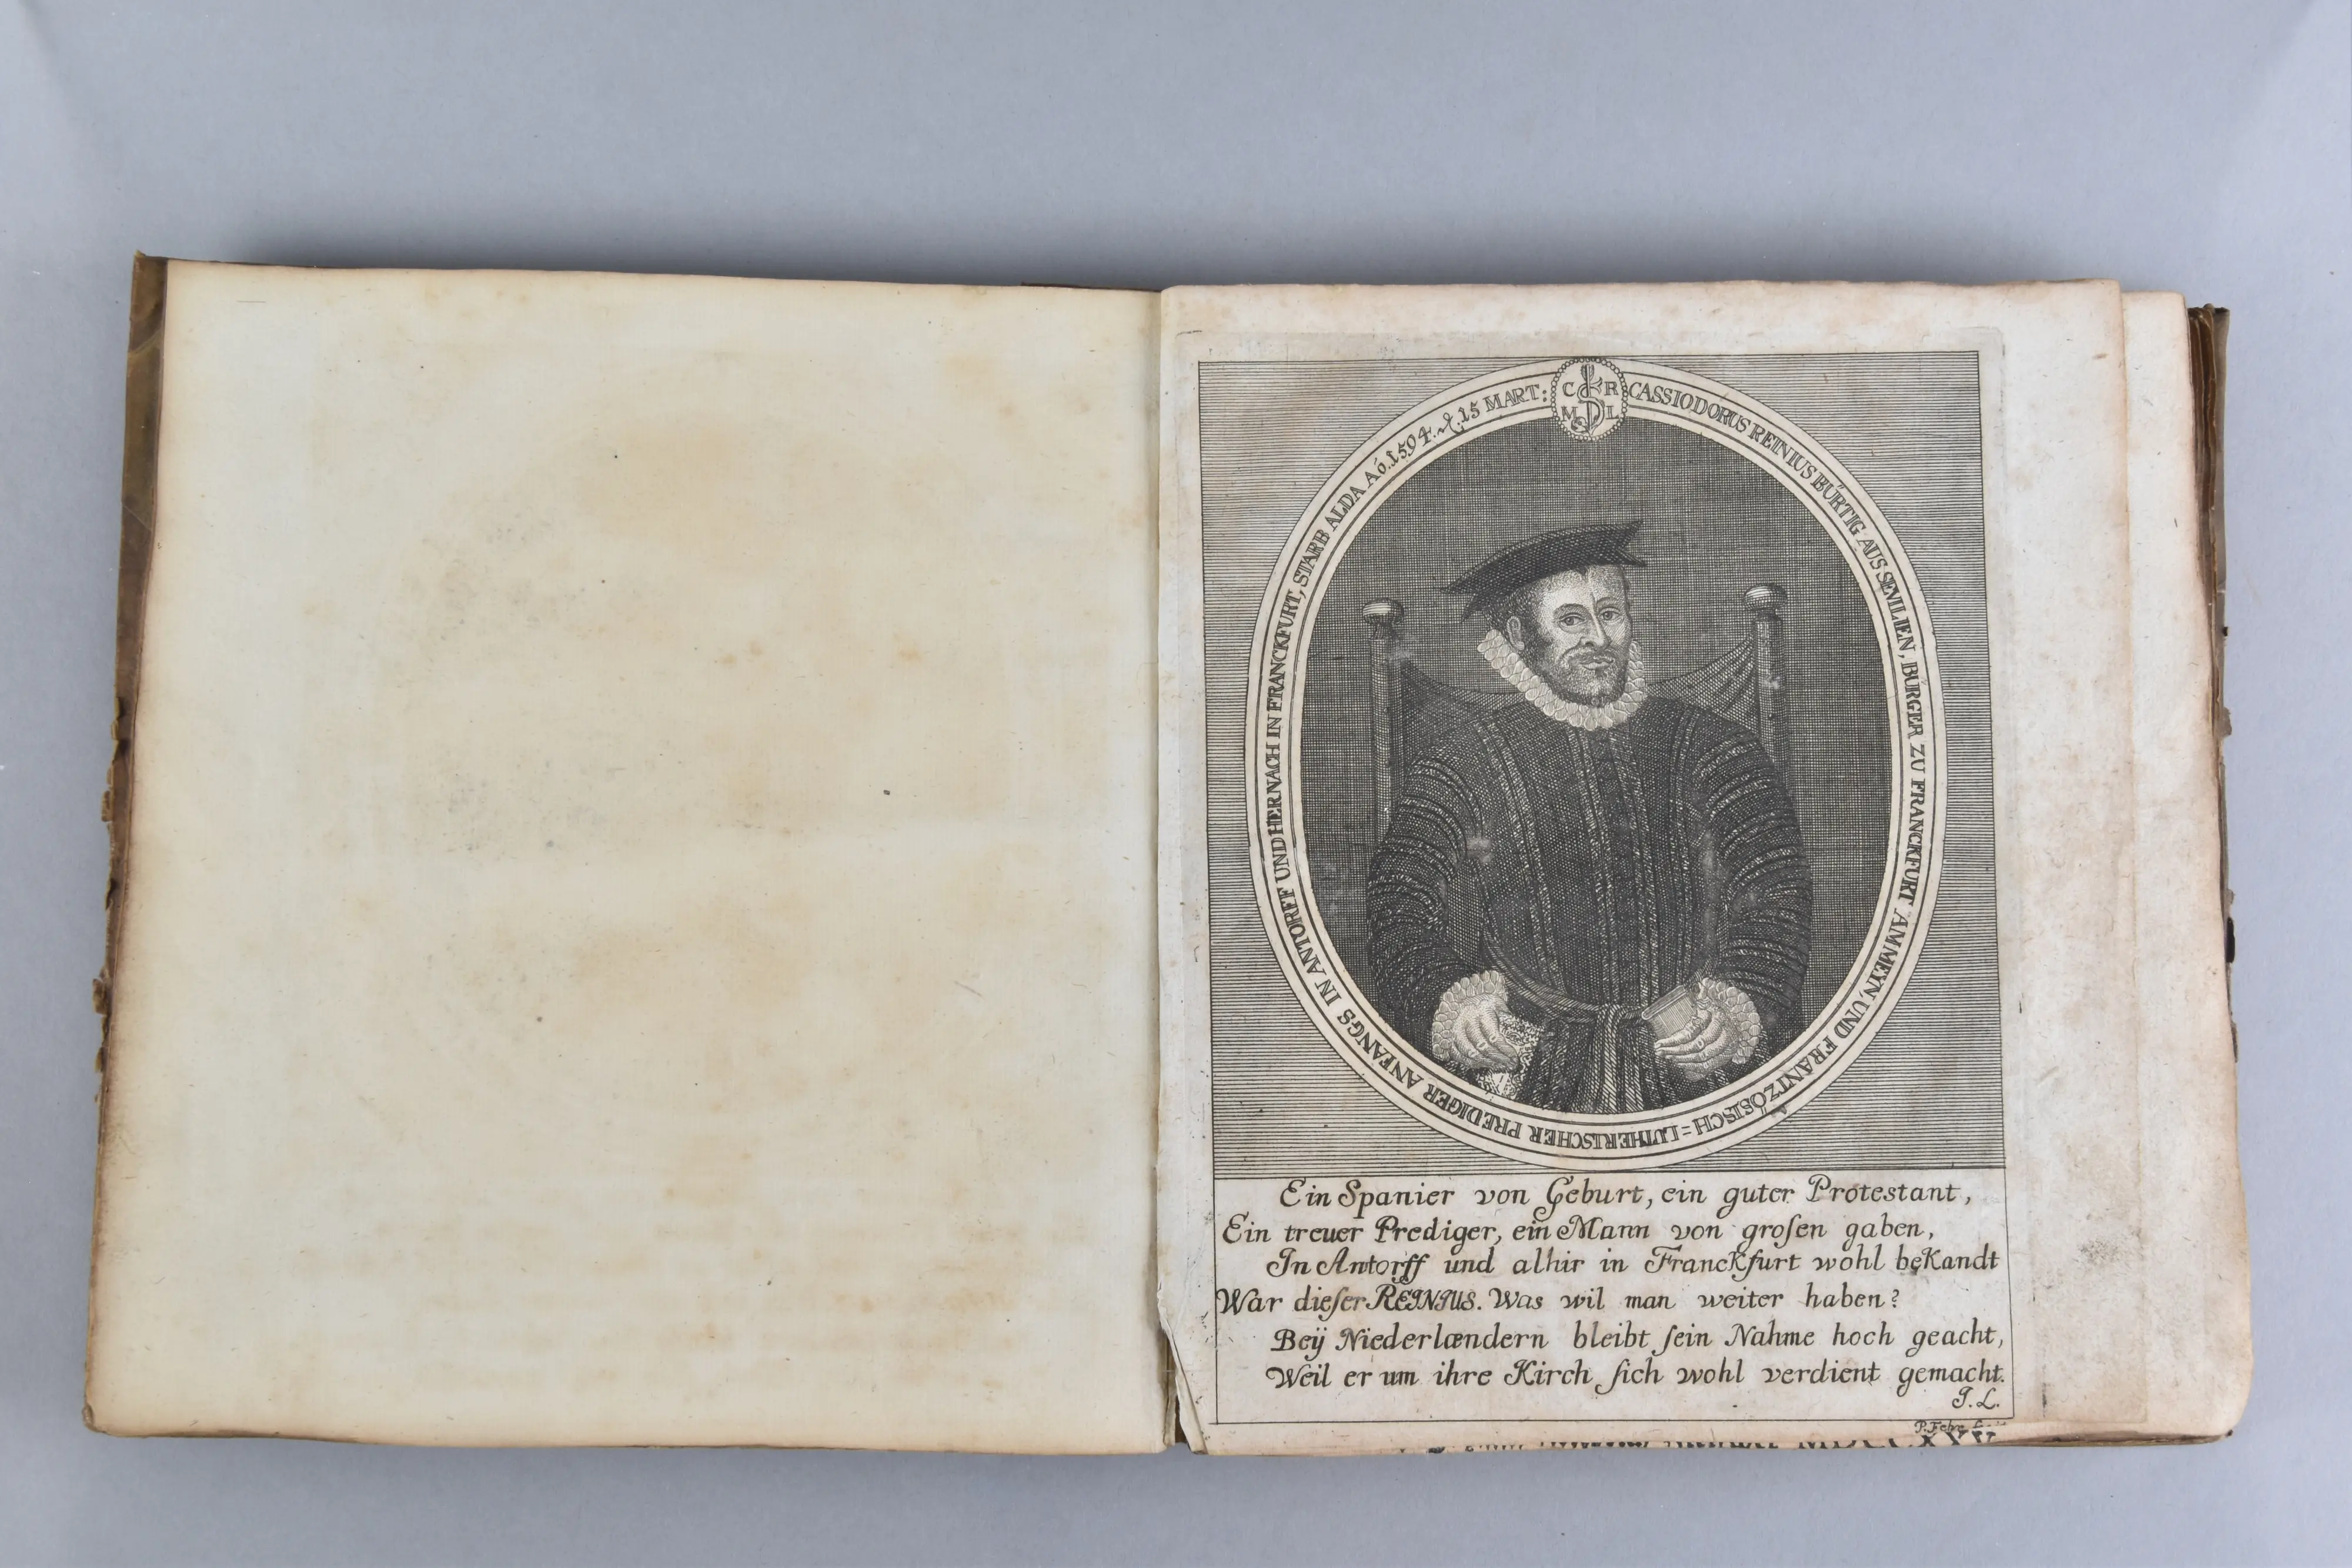 C R
M L
CASSIODORUS REINIUS BÚRTIG AUS SEVILIEN, BÚRGER ZU FRANCKFURT AM MEYN, UND FRANTZÖSISCH=LUTHERISCHER PREDIGER ANFANGS IN ANTORFF UND HERNACH IN FRANCKFURT, STARB ALDA Aó. 1594. d. 15 MART:
Ein Spanier von Geburt, ein guter Protestant,
Ein treuer Prediger, ein Mann von groſen gaben,
In Antorff und alhir in Franckfurt wohl bekandt
War dieſer REINIUS. Was wil man weiter haben?
Beÿ Niederlændern bleibt ſein Nahme hoch geacht,
Weil er um ihre Kirch ſich wohl verdient gemacht.
J. L.
P. Fehr